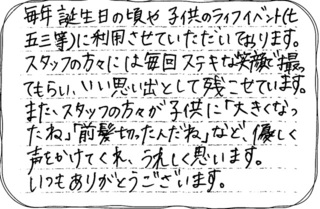 毎年誕生日の頃や子供のライフイベント(七
五三等)に利用させていただいております。
スタッフの方々には毎回ステキな笑顔で撮っ
てもらい、いい思い出として残こせています。
また、スタッフの方々が子供に「大きくなっ
たね」「前髪切ったんだね」など、優しく
声をかけてくれ、うれしく思います。
いつもありがとうございます。